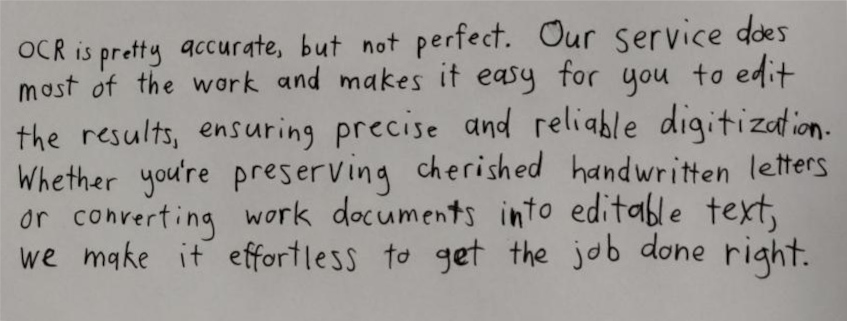 OCR is pretty accurate, but not perfect. Our service does
most of the work and makes it easy for you to edit
the results, ensuring precise and reliable digitization.
Whether you're preserving cherished handwritten letters
or converting work documents into editable text,
we make it effortless to get the job done right.